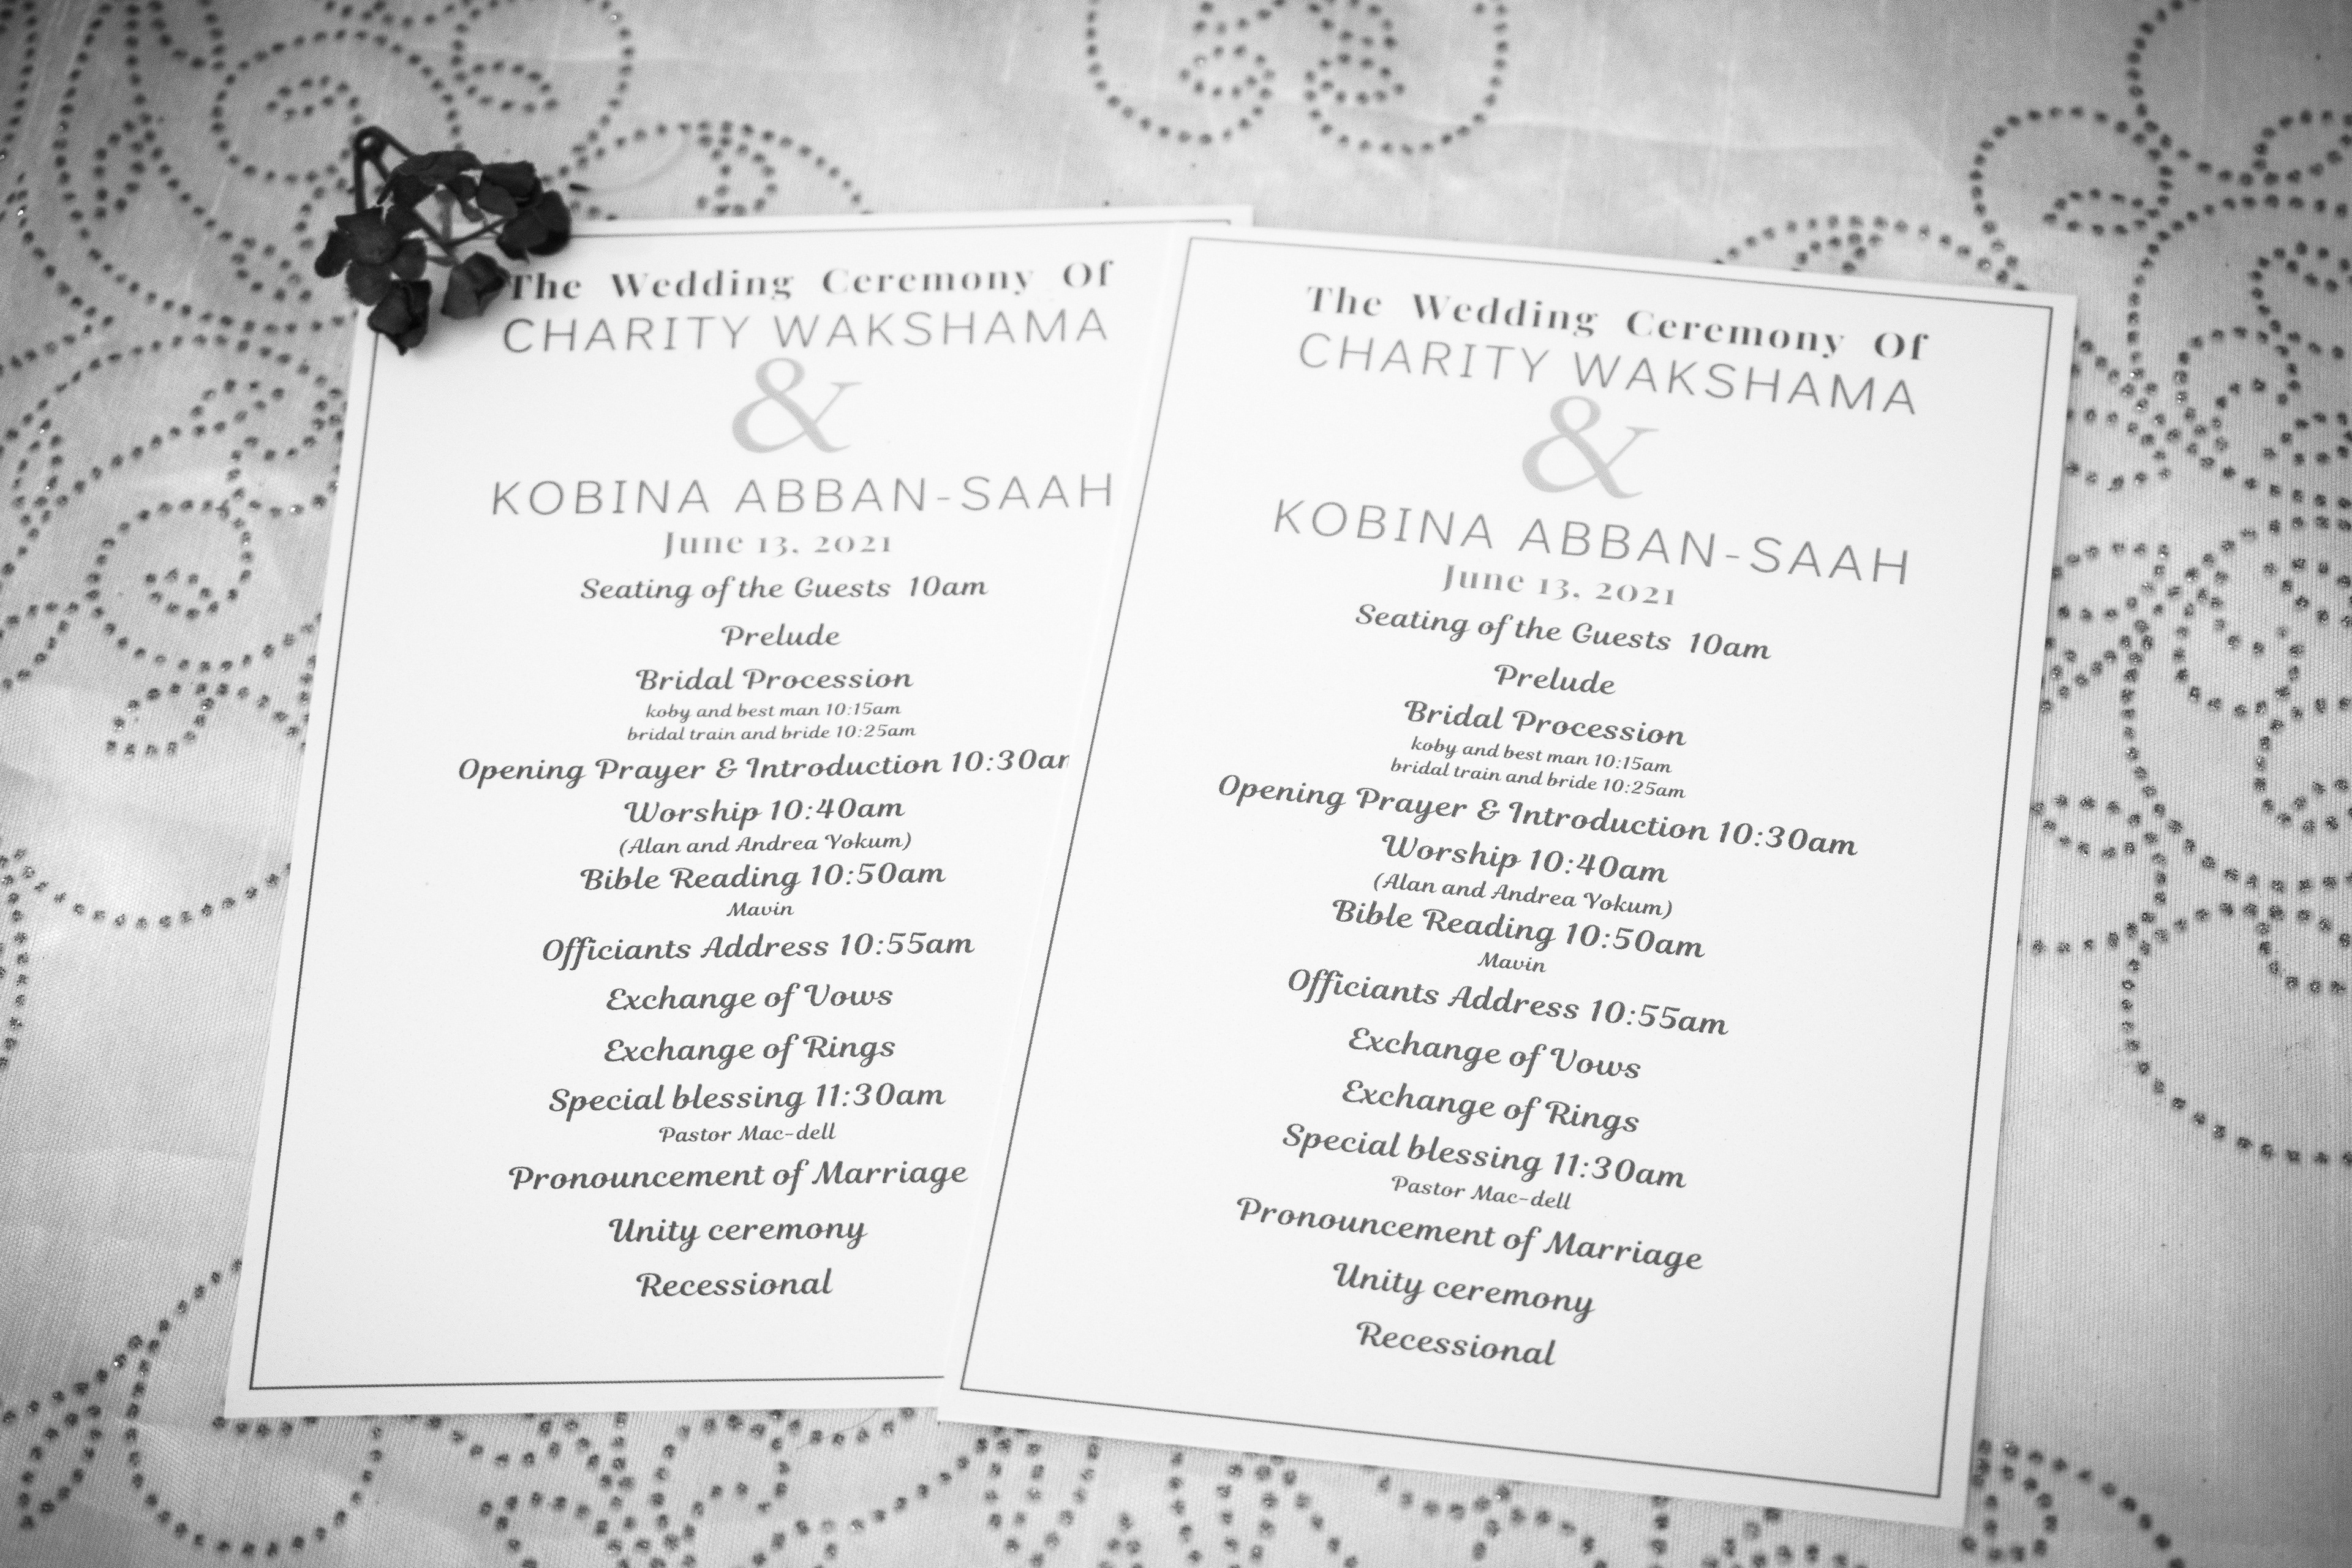 The Wedding Ceremony Of
CHARITY WAKSHAMA
&
KOBINA ABBAN-SAAH
June 13, 2021
Seating of the Guests 10am
Prelude
Bridal Procession
koby and best man 10:15am
bridal train and bride 10:25am
Opening Prayer & Introduction 10:30am
Worship 10:40am
(Alan and Andrea Yokum)
Bible Reading 10:50am
Mavin
Officiants Address 10:55am
Exchange of Vows
Exchange of Rings
Special blessing 11:30am
Pastor Mac-dell
Pronouncement of Marriage
Unity ceremony
Recessional
The Wedding Ceremony Of
CHARITY WAKSHAMA
&
KOBINA ABBAN-SAAH
June 13, 2021
Seating of the Guests 10am
Prelude
Bridal Procession
koby and best man 10:15am
bridal train and bride 10:25am
Opening Prayer & Introduction 10:30am
Worship 10:40am
(Alan and Andrea Yokum)
Bible Reading 10:50am
Mavin
Officiants Address 10:55am
Exchange of Vows
Exchange of Rings
Special blessing 11:30am
Pastor Mac-dell
Pronouncement of Marriage
Unity ceremony
Recessional